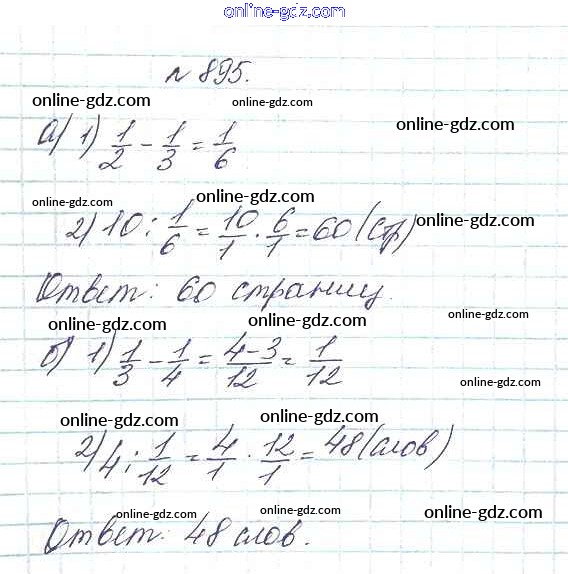 online-gdz.com
№ 895.
online-gdz.com online-gdz.com online-gdz.com
а) 1) 1/2 - 1/3 = 1/6
online-gdz.com online-gdz.com online-gdz.com
2) 10 : 1/6 = 10/1 · 6/1 = 60 (стр)
Ответ: 60 страниц.
online-gdz.com online-gdz.com online-gdz.com
б) 1) 1/3 - 1/4 = 4-3/12 = 1/12
online-gdz.com
online-gdz.com online-gdz.com
2) 4 : 1/12 = 4/1 · 12/1 = 48 (слов)
online-gdz.com online-gdz.com online-gdz.com
Ответ: 48 слов.